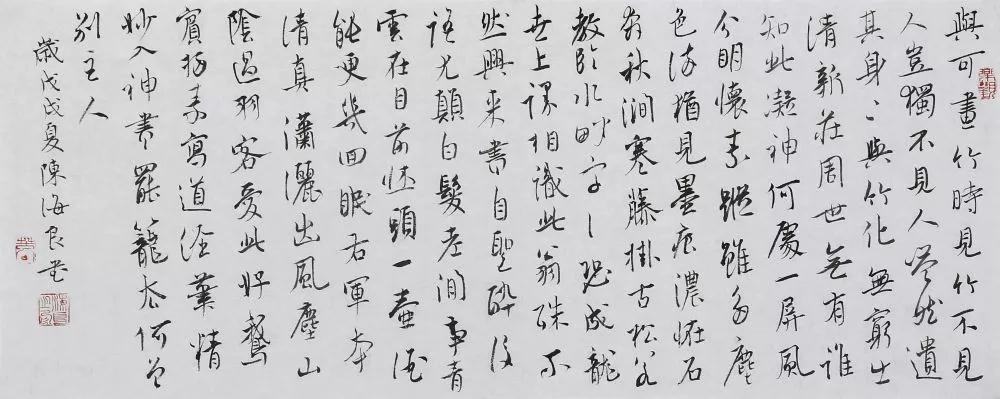 與可畫竹時見竹不見
人豈獨不見人嗒然遺
其身〻與竹化無窮出
清新莊周世無有誰
知此凝神何處一屏風
分明懷素蹤雖多塵
色染猶見墨痕濃怪石
奔秋澗寒藤掛古松若
教臨水畔字〻恐成龍
世上謾相識此翁殊不
然興來書自聖醉後
語尤顛白髮老閒事青
雲在目前床頭一壺酒
能更幾回眠右軍本
清真瀟灑出風塵山
陰過羽客愛此好鵝
賓掃素寫道經筆精
妙入神書罷籠去何曾
別主人
歲戊戌夏陳海良書